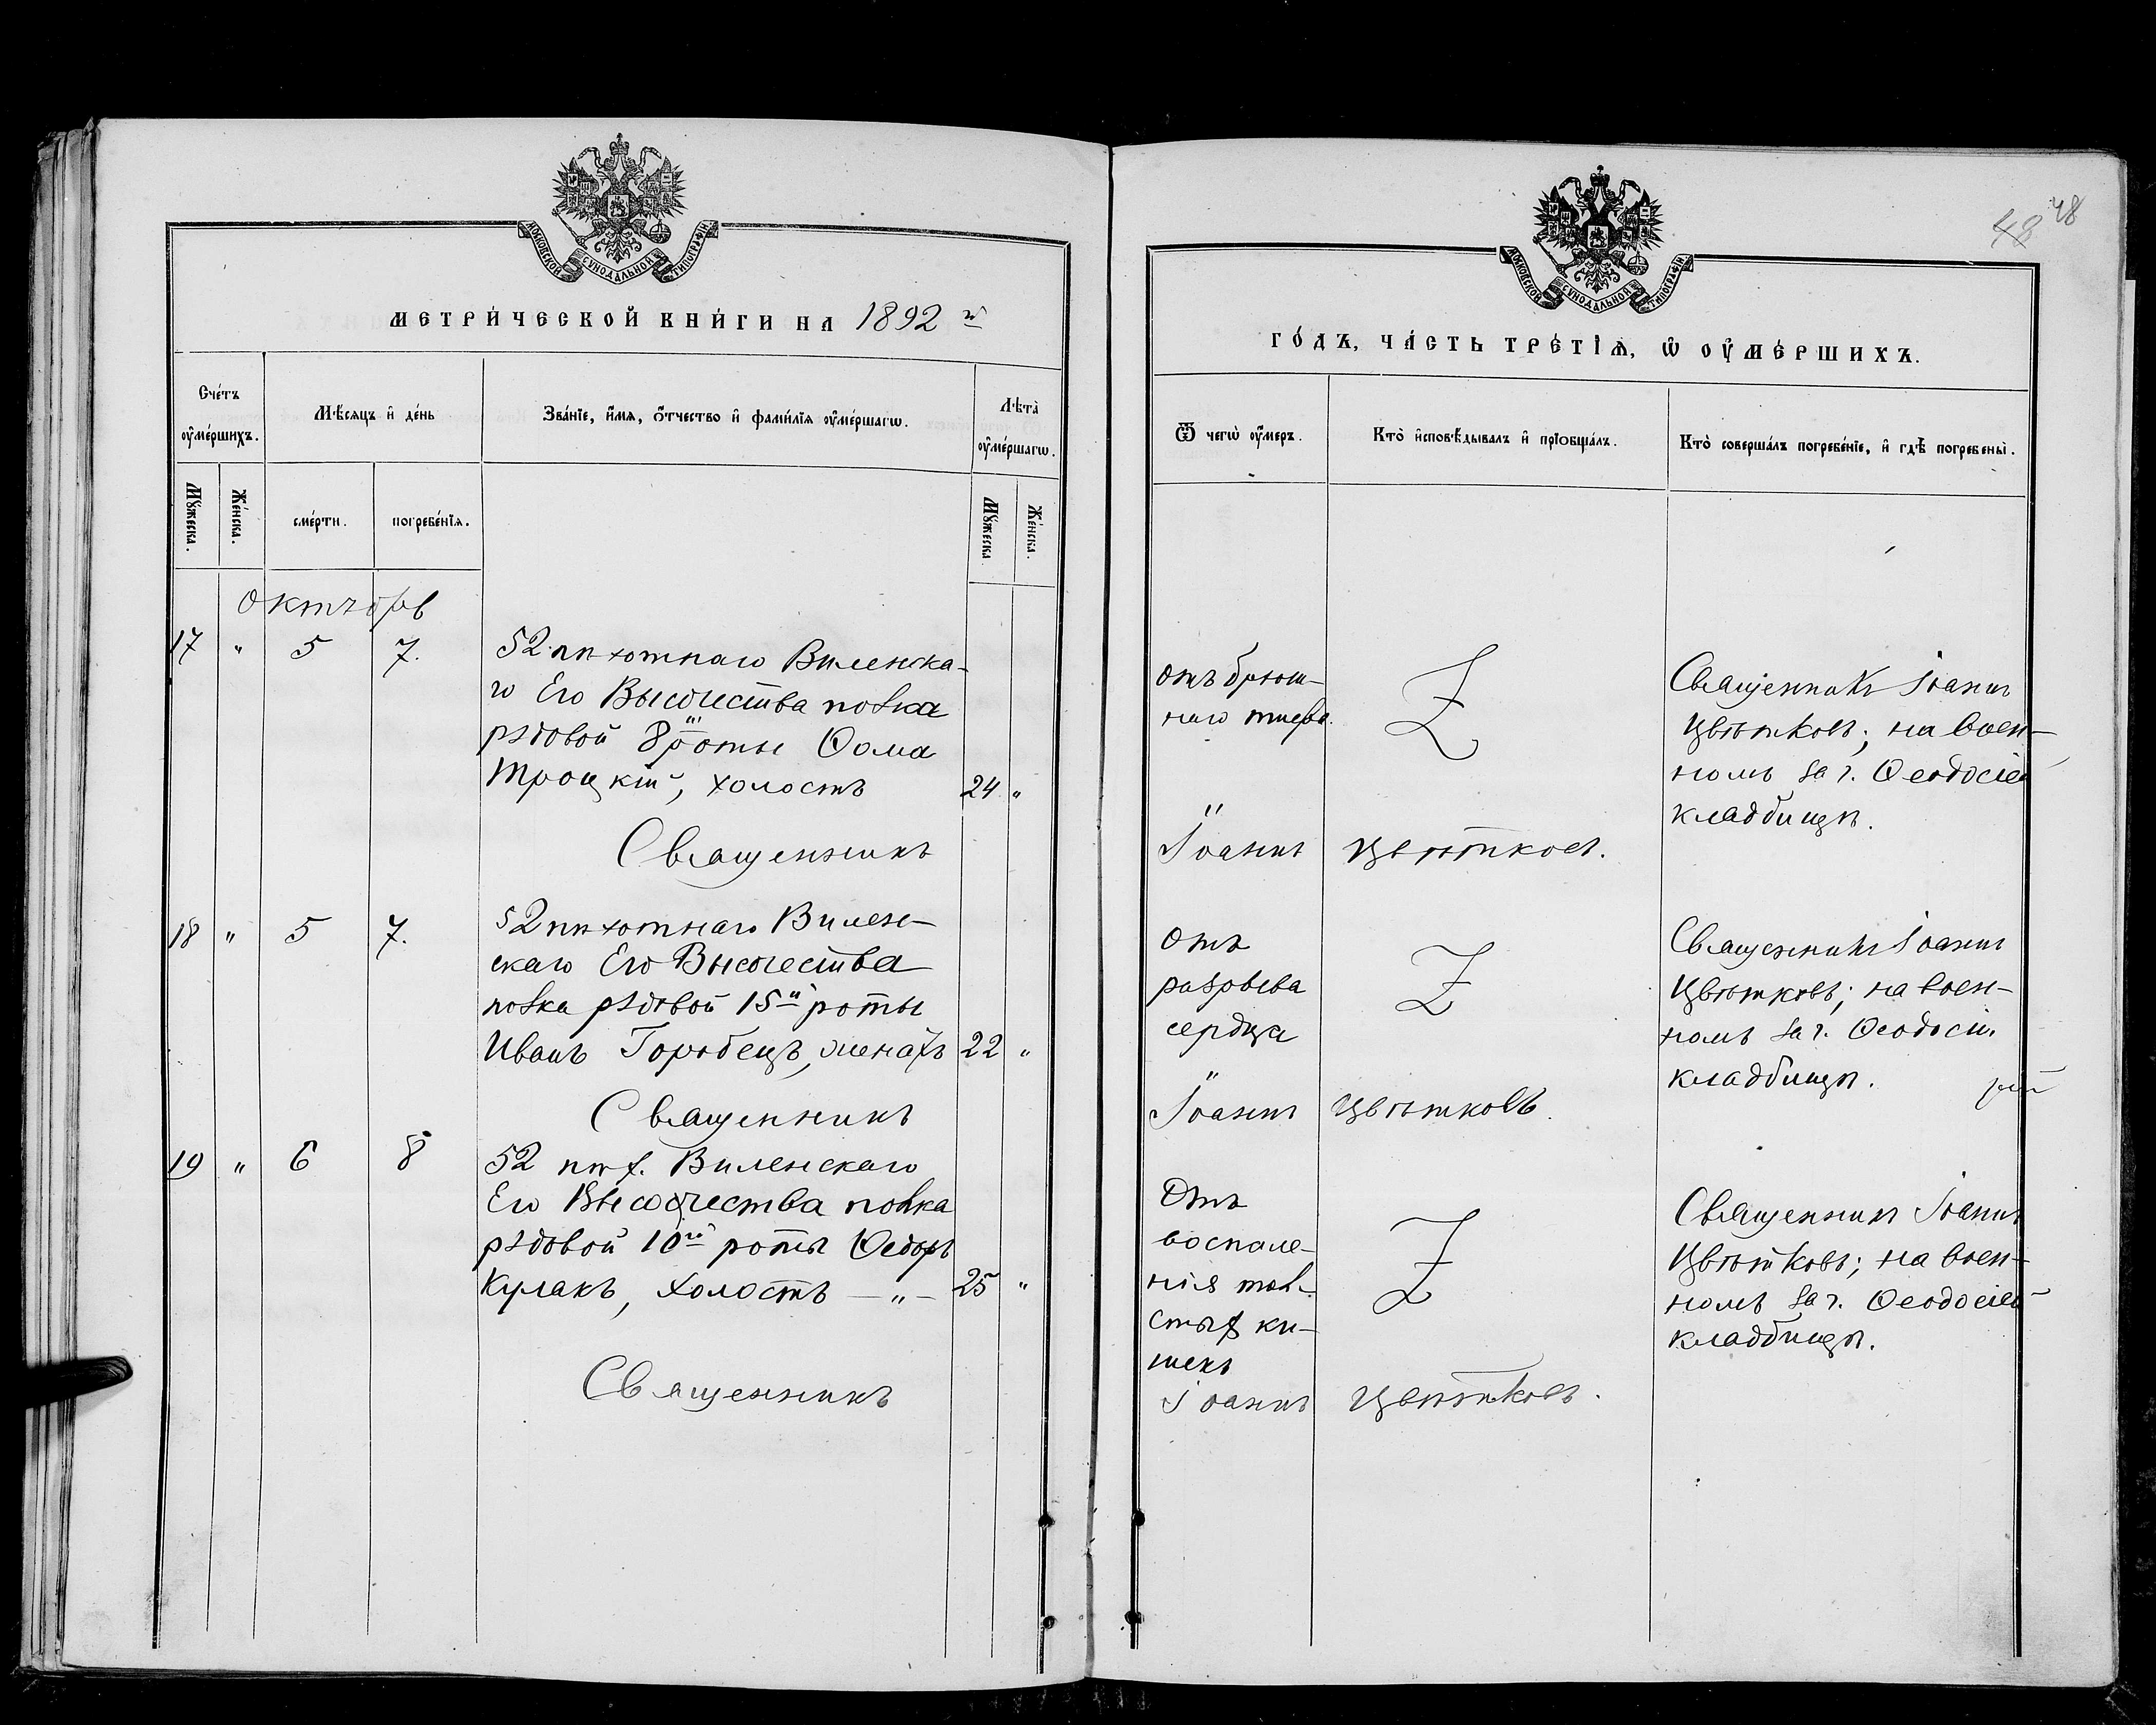 МОСКОВСКОЙ СѴНОДАЛЬНОЙ ТИПОГРАФІИ
МЕТРИ́ЧЕСКОЙ КНИ́ГИ НА 1892 й
Сче́тъ оу҆ме́ршихъ.
Мѣ́сяцъ и҆ де́нь
Зва́нїе, и҆́мя, ѻ҆́тчество и҆ фами́лїя оу҆ме́ршагѡ.
Лѣ́та оу҆ме́ршагѡ.
Мꙋ́жеска.
Же́нска.
сме́рти.
погребе́нїя.
Мꙋ́жеска
Же́нска.
Октябрь
17 " 5 7.
52 пѣхотнаго Виленска-
го Его Высочества полка
рядовой 8й роты Ѳома
Троцкій, холостъ 24 "
Священникъ
18 " 5 7.
52 пѣхотнаго Вилен-
скаго Его Высочества
полка рядовой 15й роты
Иванъ Горобецъ, женатъ 22 "
Священникъ
19 " 6 8
52 пѣх. Виленскаго
Его Высочества полка
рядовой 10й роты Ѳедоръ
Кулакъ, холостъ — " — 25 "
Священникъ
48 48
МОСКОВСКОЙ СѴНОДАЛЬНОЙ ТИПОГРАФІИ
ГО́ДЪ, ЧА́СТЬ ТРЕ́ТІѦ, Ѡ҆ ОУ҆МЕ́РШИХЪ.
Ѿ чегѡ̀ оу҆́меръ.
Кто̀ и҆сповѣ́дывалъ и҆ прїобща́лъ.
Кто̀ соверша́лъ погребе́нїе, и҆ гдѣ̀ погребены̀.
отъ брюш-
наго тифа.
Священникъ Іоаннъ
Цвѣтковъ; на воен-
номъ за г. Ѳеодосіей
кладбищѣ.
Іоаннъ Цвѣтковъ.
Отъ
разрыва
сердца
Священникъ Іоаннъ
Цвѣтковъ; на воен-
номъ за г. Ѳеодосі.
кладбищѣ.
Іоаннъ Цвѣтковъ.
Отъ
воспале-
нія тол-
стыхъ ки-
шекъ
Священникъ Іоаннъ
Цвѣтковъ; на воен-
номъ за г. Ѳеодосіей
кладбищѣ.
Іоаннъ Цвѣтковъ.